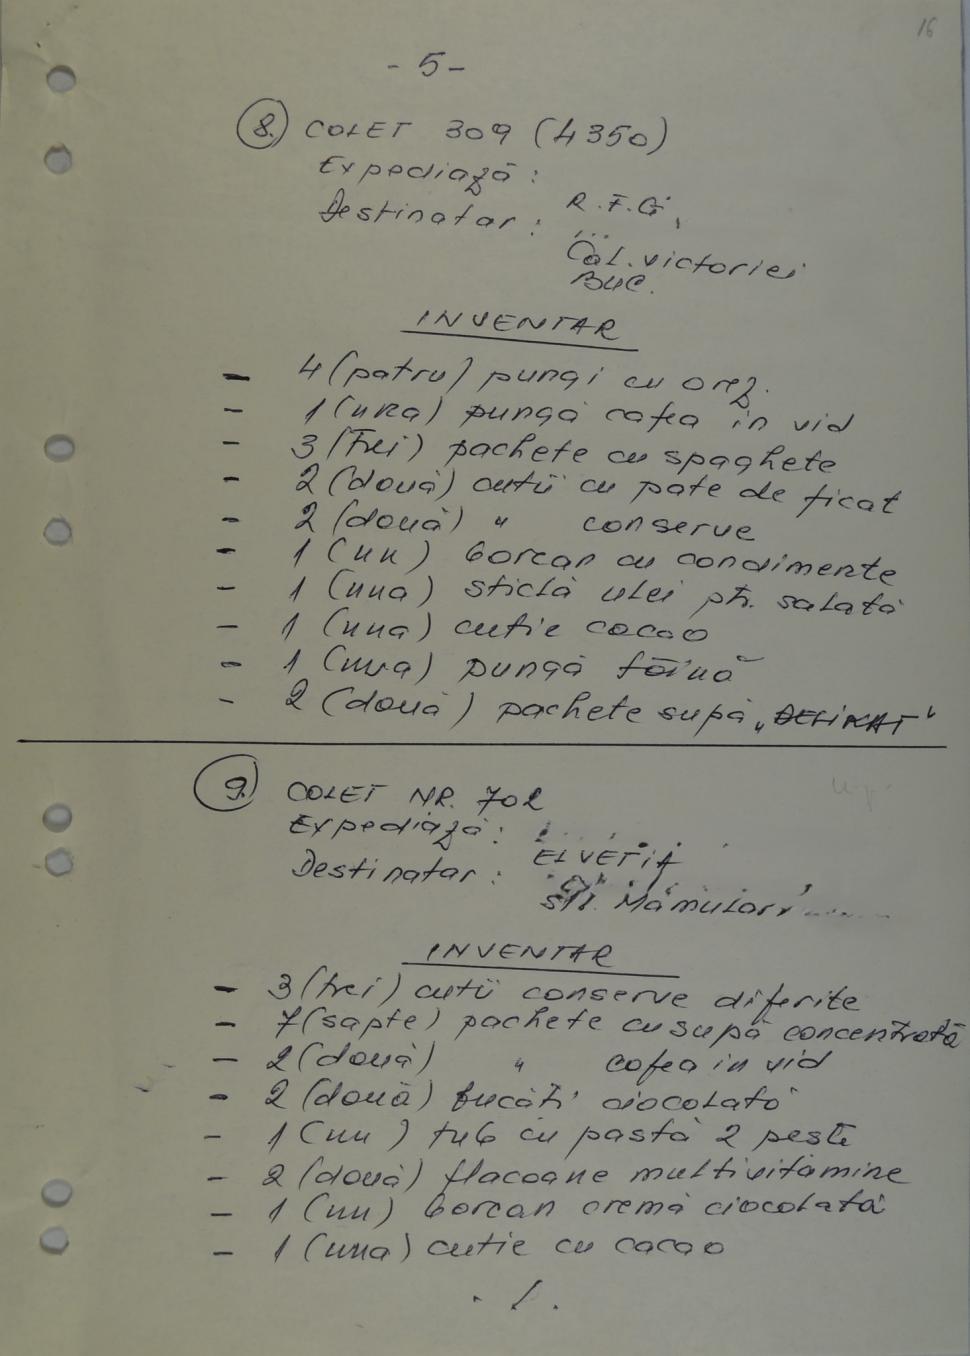 16
- 5 -
8. COLET 309 (4350)
Expediază :
R.F.G.,
Destinatar :
Cal. Victoriei
BUC.
INVENTAR
- 4 (patru) pungi cu orez.
- 1 (una) pungă cafea în vid
- 3 (trei) pachete cu spaghete
- 2 (două) cutii cu pate de ficat
- 2 (două) " conserve
- 1 (un) borcan cu condimente
- 1 (una) sticlă ulei ptr. salată
- 1 (una) cutie cacao
- 1 (una) pungă făină
- 2 (două) pachete supă „DELIKAT"
9. COLET NR. 702
Expediază :
ELVEȚIA
Destinatar :
Str. Mămulari
INVENTAR
- 3 (trei) cutii conserve diferite
- 7 (sapte) pachete cu supă concentrată
- 2 (două) " cafea in vid
- 2 (două) bucăți ciocolată
- 1 (un) tub cu pastă 2 peste
- 2 (două) flacoane multivitamine
- 1 (un) borcan cremă ciocolată
- 1 (una) cutie cu cacao
. / .